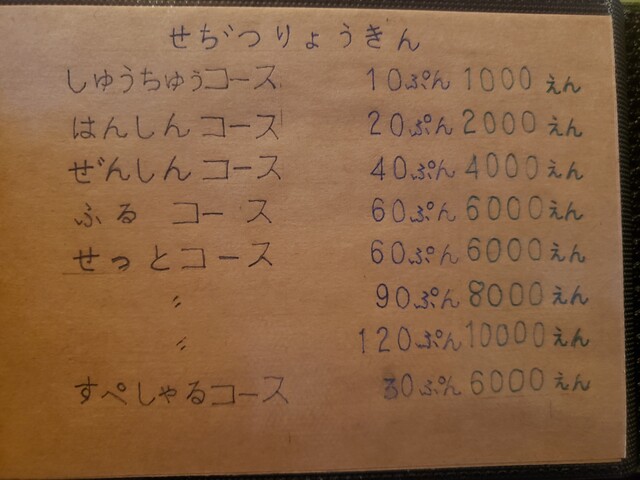 せぢつりょうきん
しゅうちゅうコース 10ぷん 1000えん
はんしんコース 20ぷん 2000えん
ぜんしんコース 40ぷん 4000えん
ふるコース 60ぷん 6000えん
せっとコース 60ぷん 6000えん
〃 90ぷん 8000えん
〃 120ぷん 10000えん
すぺしゃるコース 30ぷん 6000えん